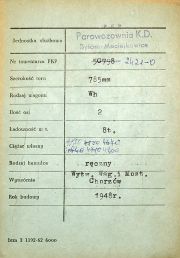 P K P
Jednostka służbowa Parowozownia K.D.
Nr inwentarza PKP 50798 2421-0
Szerokość toru 785mm
Rodzaj wagonu Wh
Ilość osi 2
Ładowność w t. 8t.
Ciężar własny
Rodzaj hamulca ręczny
Wytwórnia Wytw. Wag. i Most.
Chorzów
Rok budowy 1948r.